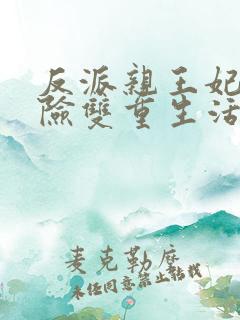 反派親王妃
險雙重生活
麦克勒麽
未任同意禁止転載